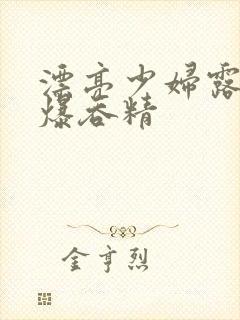 漂亮少婦露
爆吞精
金亨烈